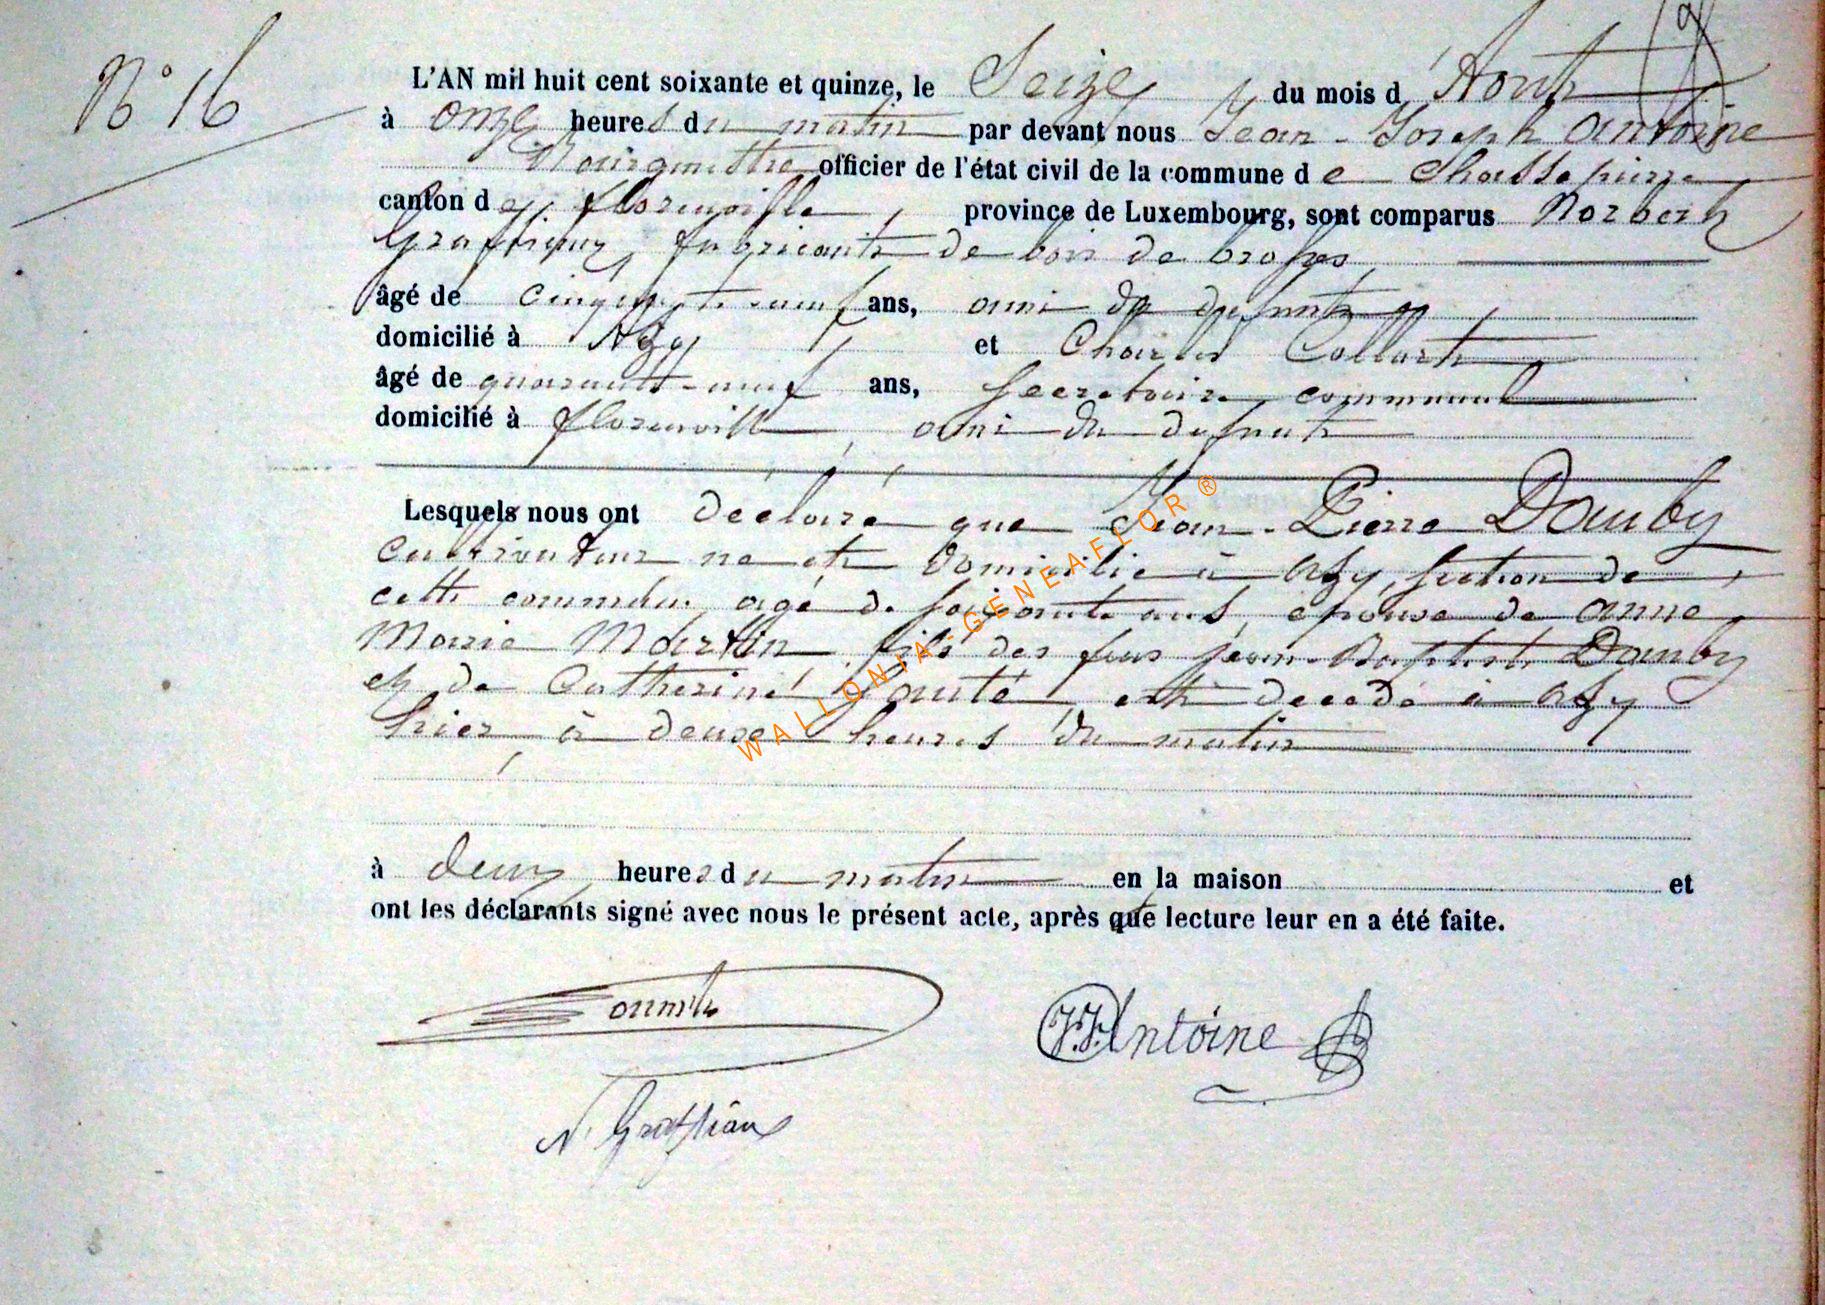 N° 16
L'AN mil huit cent soixante et quinze, le Seize du mois d'Août
à onze heures du matin par devant nous Jean-Joseph Antoine
Bourgmestre officier de l'état civil de la commune de Chassepierre
canton de florenville, province de Luxembourg, sont comparus Norbert
fabricant de bois de brosses,
âgé de cinquante-neuf ans, ami du defunt
domicilié à Azy et Charles Collart
âgé de quarante-neuf ans, secretaire communal
domicilié à florenville, ami du defunt
Lesquels nous ont déclaré que Jean-Pierre Dauby
cultivateur né et domicilié à Azy, section de
cette commune, agé de soixante ans, epoux de anne
Marie Martin, fils des feus jean-Baptiste Dauby
et de Catherine est decedé à Azy
hier, à deux heures du matin
à deux heures du matin en la maison et
ont les déclarants signé avec nous le présent acte, après que lecture leur en a été faite.
J.J. Antoine
N.
WALLONIA-GENEAFLOR ®